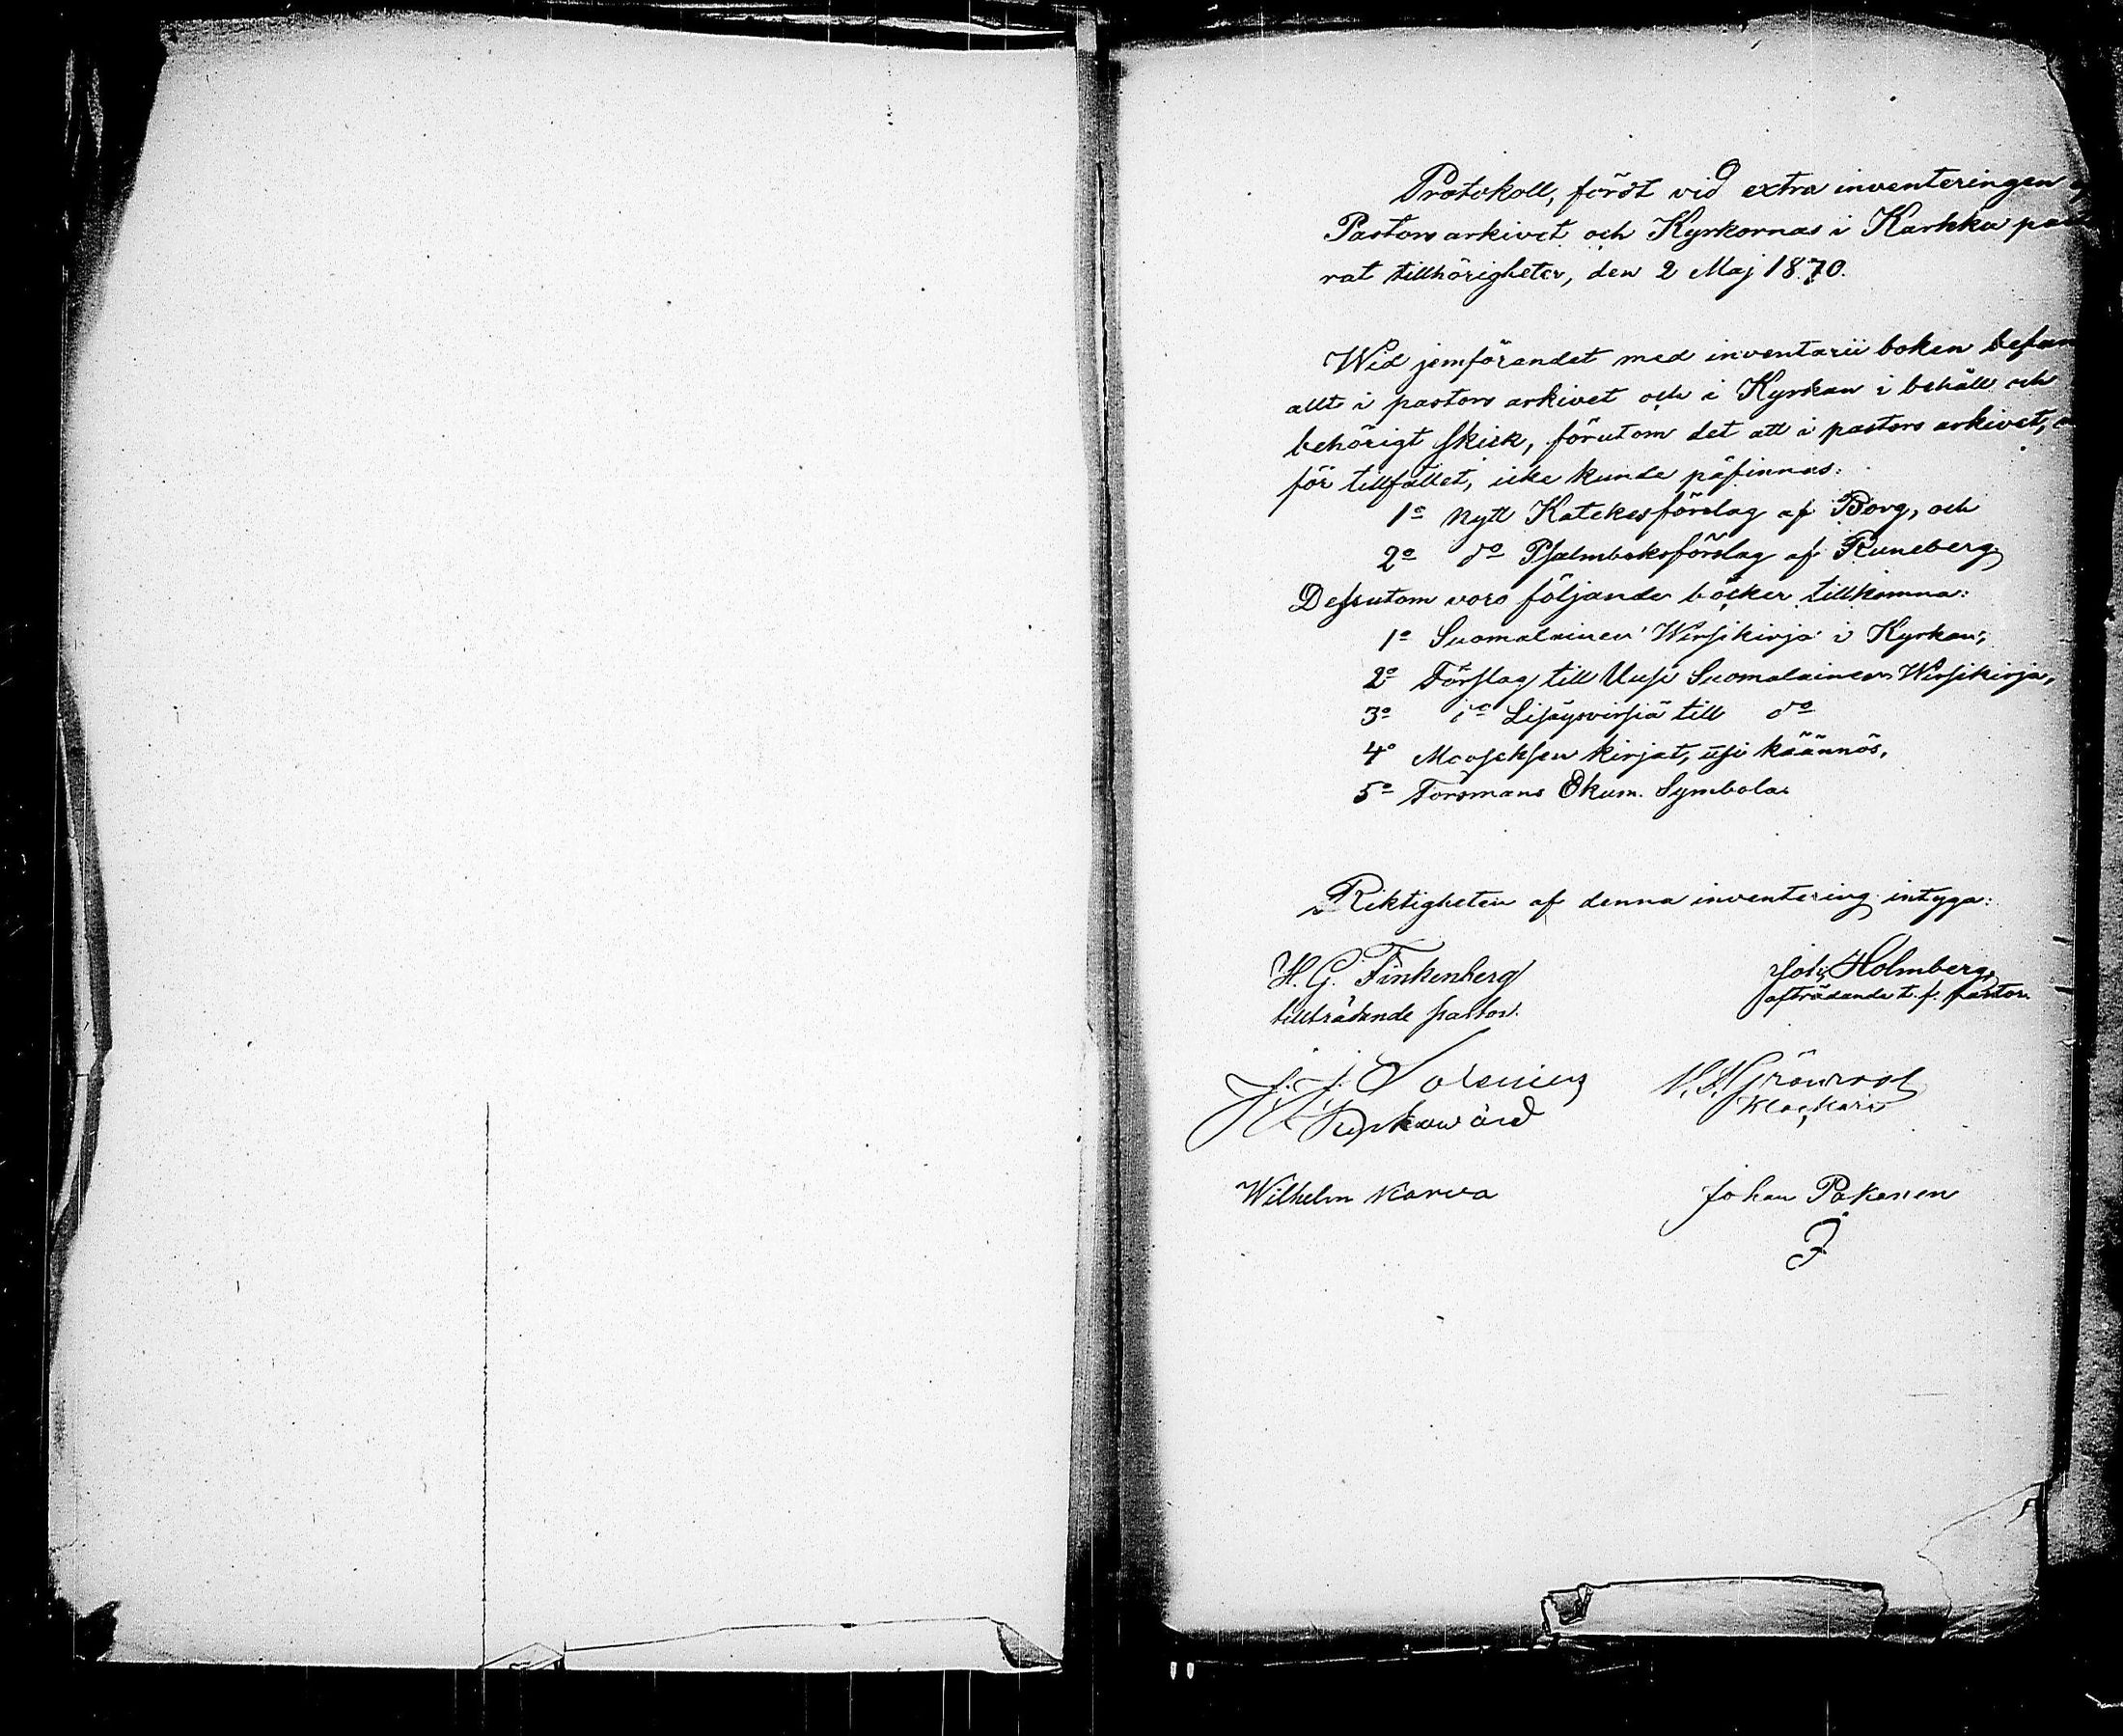 Protokoll, fördt vid extra inventeringen
Pastors arkivet och Kyrkornas i Karkku past
rat tillhörigheter, den 2 Maj 1870.
Wid jemförandet med inventarii boken befan
allt i pastors arkivet och i Kyrkan i behåll och
behörigt skick, förutom det att i pastors arkivet,
för tillfället, icke kunde påfinnas:
1º Nytt Katekesförslag af Borg, och
2º dº Psalmboksförslag af Runeberg
Dessutom voro följande böcker tillkomna:
1º Suomalainen Wirsikirja i Kyrkan,
2º Förslag till Uusi Suomalainen Wirsikirja,
3º dº Lisäysvirsiä till dº
4º Mooseksen kirjat, usi käännös,
5º Forsmans Ekum. Symbola
Riktigheten af denna inventering intyga:
H. G. Finkenberg Joh. Holmberg,
tillträdande pastor. afträdande t. f. pastor.
J. J.
Kyrkowärd Klockare
Wilhelm Karva Johan Pakanen